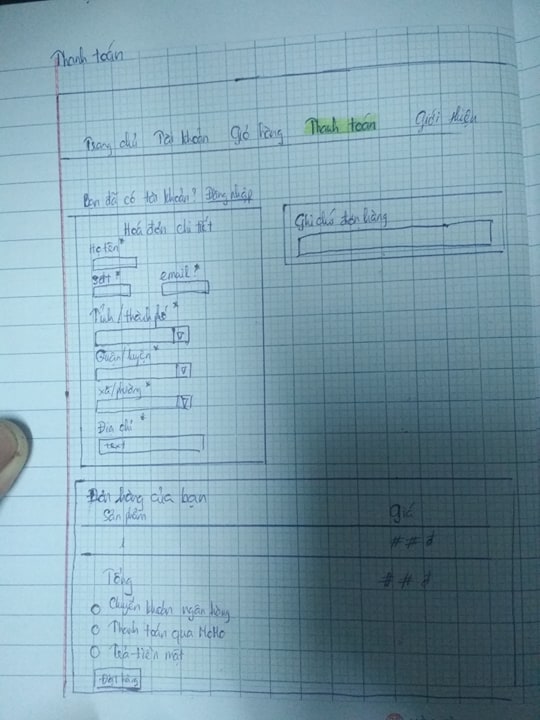 Thanh toán
Trang chủ Tài khoản Giỏ hàng Thanh toán Giới thiệu
Bạn đã có tài khoản? Đăng nhập
Hoá đơn chi tiết
Họ tên*
SĐT* email*
Tỉnh/thành phố*
Quận/huyện*
xã/phường*
Địa chỉ*
text
Ghi chú đơn hàng
Đơn hàng của bạn
Sản phẩm Giá
1 # # đ
Tổng # # đ
Chuyển khoản ngân hàng
Thanh toán qua MoMo
Trả tiền mặt
Đặt hàng